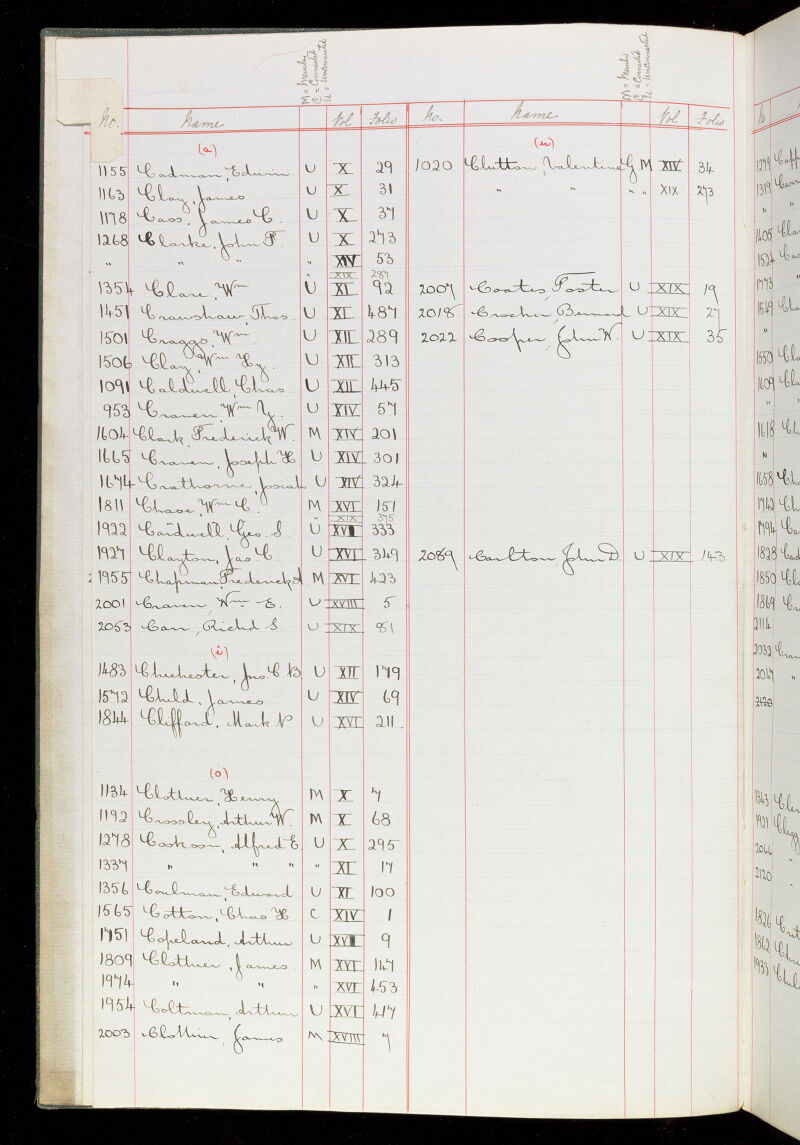 M = Member
C = Connected
U = Unconnected
No. Name Vol Folio
(a)
1155 Cadman, Edwin U X 29
1163 Clay, James U X 31
1178 Cass, James C. U X 37
1268 Clarke, John F. U X 273
" " " " XIV 53
" XIX 287
1354 Clare, Wm U XI 92
1451 Crawshaw, Thos. U XI 487
1501 Craggs, Wm U XII 289
1506 Clay, Wm Hy. U XII 313
1091 Caldwell, Chas. U XII 445
953 Craven, Wm Hy. U XIV 57
1604 Clark, Frederick W. M XIV 201
1665 Craven, Joseph H U XIV 301
1674 Crathorne, Josiah U XIV 324
1811 Chase, Wm C. M XVI 151
" XIX 375
1922 Cardwell, Geo. S. U XVI 333
1927 Clayton, Jas. C. U XVI 349
1955 Chapman, Frederick A M XVI 423
2001 Craven, Wm E. U XVIII 5
2053 Carr, Richd S. U XIX 81
(i)
1483 Chichester, Jno. C. B U XII 179
1572 Child, James U XIV 69
1844 Clifford, Mark N U XVI 211.
(o)
1134 Clothier, Henry M X 7
1192 Crossley, Arthur W. M X 68
1278 Cookson, Alfred E. U X 295
1337 " " " " XI 17
1356 Coulman, Edward U XI 100
1565 Cotton, Chas H. C XIV 1
1751 Copeland, Arthur U XVI 9
1809 Clothier, James. M XVI 147
1974 " " " XVI 453
1954 Coltman, Arthur U XVI 417
2003 Clothier, James M XVIII 7
M = Member
C = Connected
U = Unconnected
No. Name Vol Folio
(u)
1020 Clutton, Valentine G M XIV 34
" " " " XIX 273
2007 Coates, Foster U XIX 19
2018 Crocker, Bernard U XIX 27
2022 Cooper, John W. U XIX 35
2089 Carlton, John D. U XIX 143
1279
1319
" "
1405 Cla
1524
1773 "
1549 Cha
"
1550 Cla
1609 Cla
"
1618
"
1658
1742
1794 Ca
1828 Cad
1850
1869
2114
2032 Cran
2047 "
2120
1363 Cle
1921 Clegg
2066 "
2120 "
1826
1862
1933 Chil